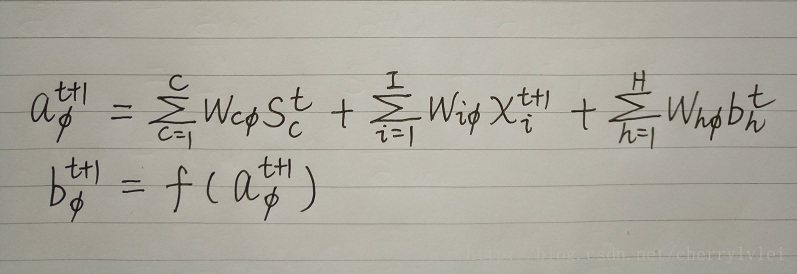 a_ϕ^{t+1} = \sum_{c=1}^{C} W_{cϕ} S_c^t + \sum_{i=1}^{I} W_{iϕ} X_i^{t+1} + \sum_{h=1}^{H} W_{hϕ} b_h^t
b_ϕ^{t+1} = f(a_ϕ^{t+1})
http://blog.csdn.net/cherrylvlei